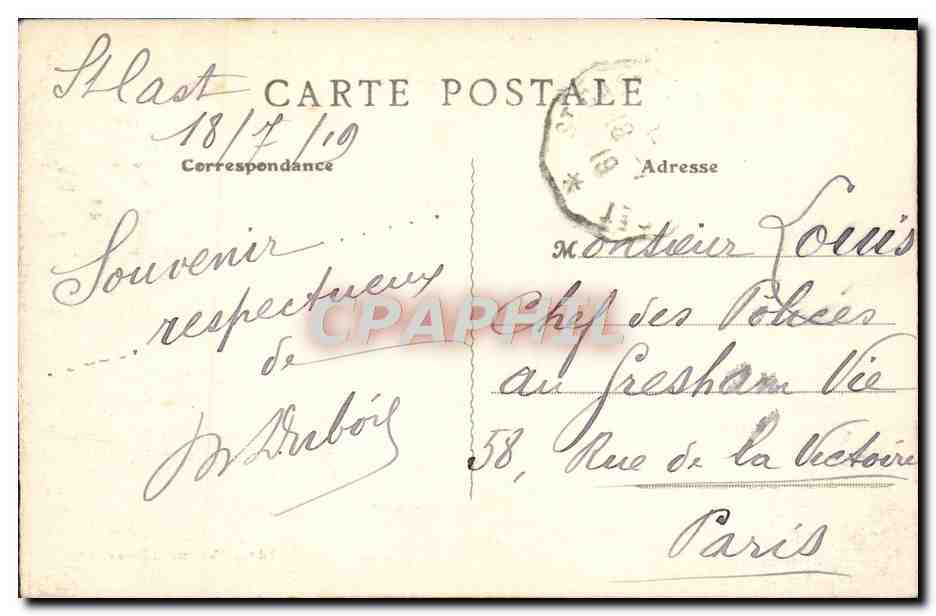 St Cast
CARTE POSTALE
18/7/19
Correspondance
Adresse
Souvenir .....
..... respectueux
de
M Dubois
Monsieur Louis
Chef des Polices
au Gresham Vie
58, Rue de la Victoire
Paris
CPAPHIL